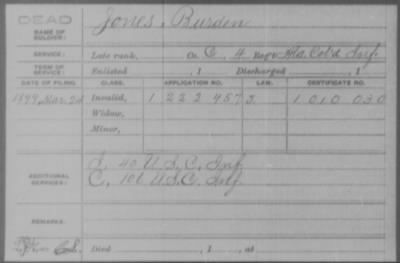 DEAD
NAME OF SOLDIER: Jones, Burden
SERVICE: Late rank, Co. C, 4 Reg't Ala. Col'd Inf.
TERM OF SERVICE: Enlisted , 1 Discharged , 1
DATE OF FILING. CLASS. APPLICATION NO. LAW. CERTIFICATE NO.
1899, Mar. 24 Invalid, 1 222 457 1 010 030
Widow,
Minor,
ADDITIONAL SERVICES: I, 40 U.S.C. Inf
C, 106 U.S.C. Inf.
REMARKS:
Died , 1 , at